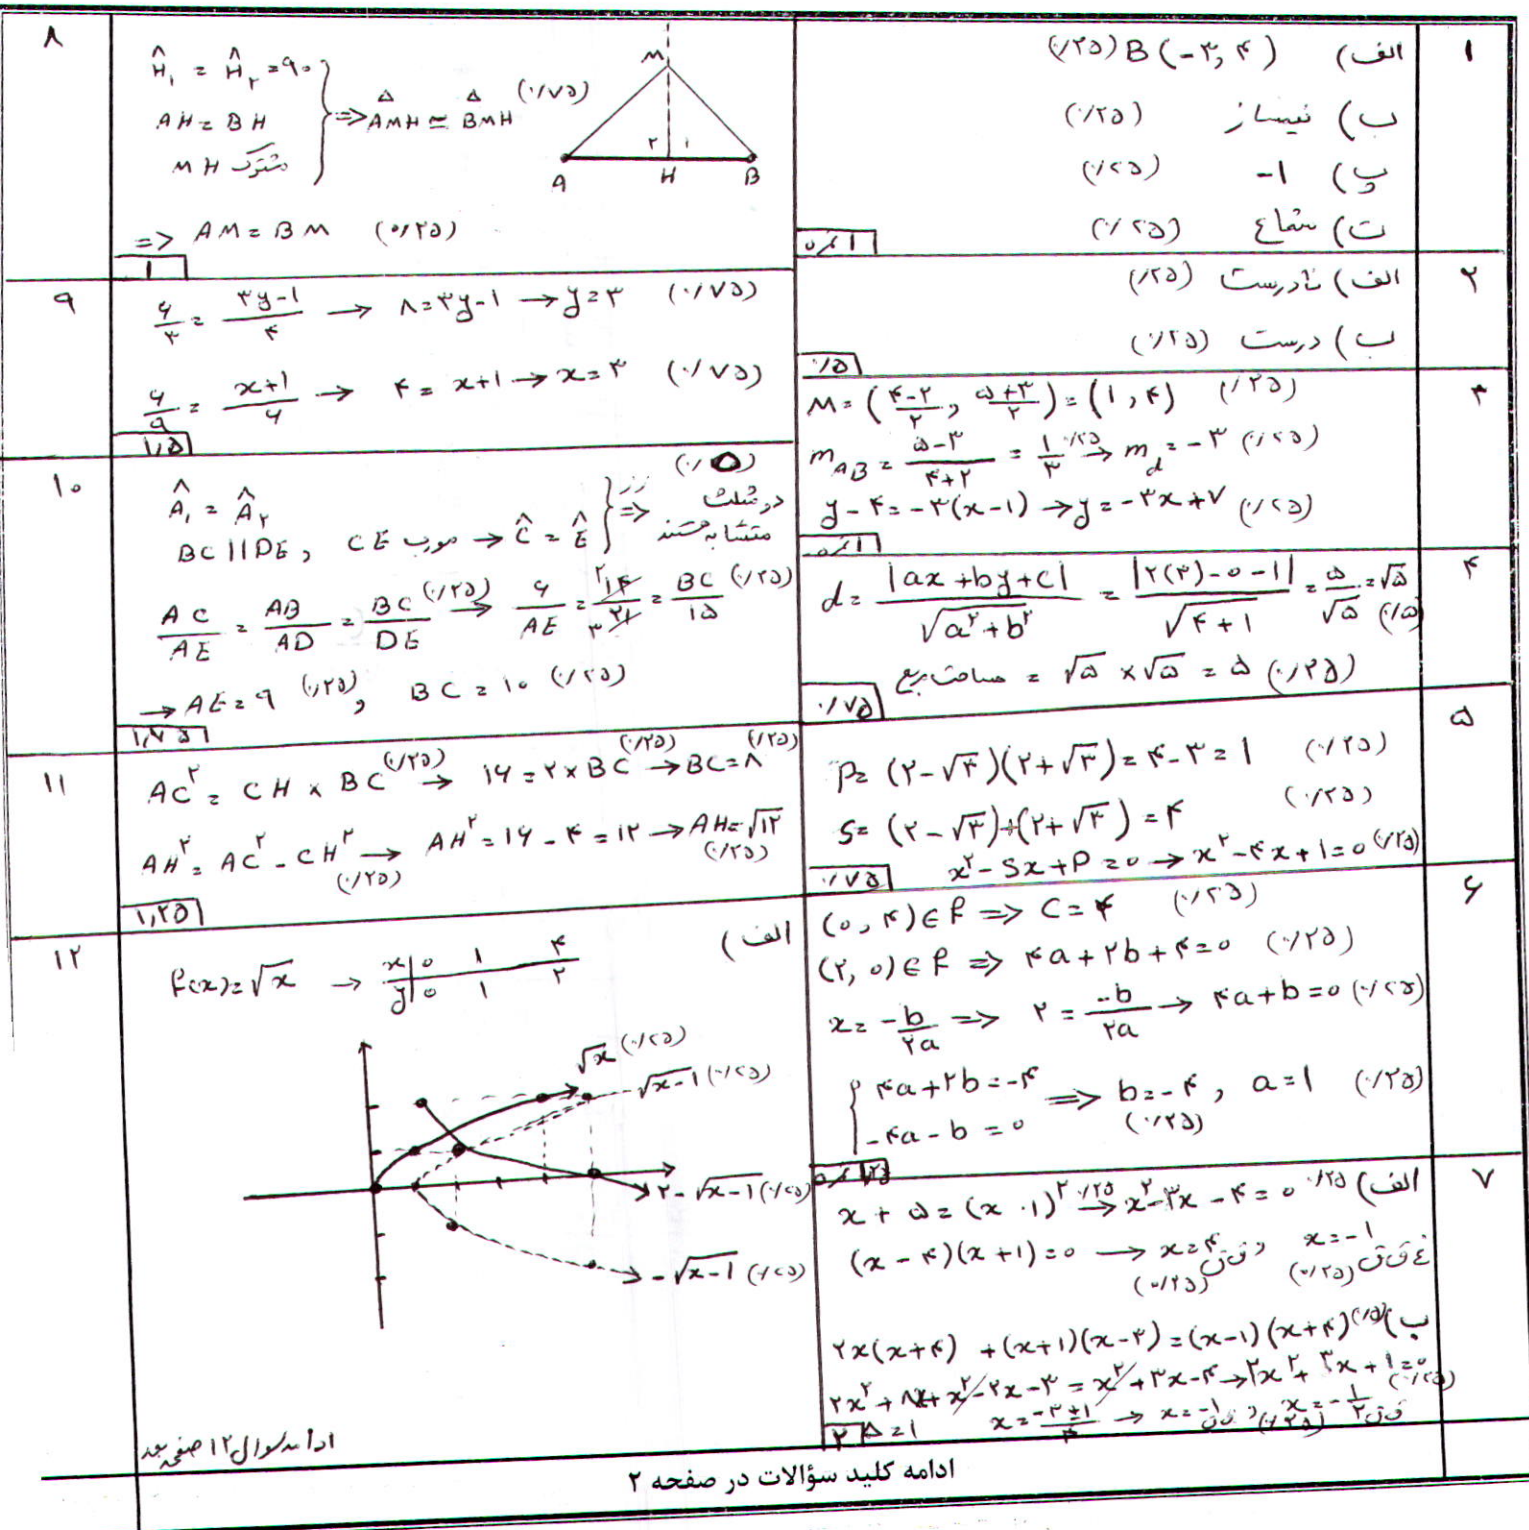 ۱
الف) B(-۳, ۴) (۰/۲۵)
ب) نیمساز (۰/۲۵)
پ) -۱ (۰/۲۵)
ت) شعاع (۰/۲۵)
۱ نمره
۲
الف) نادرست (۰/۲۵)
ب) درست (۰/۲۵)
۰/۵
۳
M = (۴-۲/۲ , ۵+۳/۲) = (۱, ۴) (۰/۲۵)
m_AB = ۵-۳/۴+۲ = ۱/۳ ۰/۲۵ → m_d = -۳ (۰/۲۵)
y-۴ = -۳(x-۱) → y = -۳x+۷ (۰/۲۵)
۱ نمره
۴
d = |ax+by+c|/√a²+b² = |۲(۳)-۰-۱|/√۴+۱ = ۵/√۵ = √۵ (۰/۵)
مساحت مربع = √۵ × √۵ = ۵ (۰/۲۵)
۰/۷۵
۵
P = (۲-√۳)(۲+√۳) = ۴-۳ = ۱ (۰/۲۵)
S = (۲-√۳)+(۲+√۳) = ۴ (۰/۲۵)
x²-Sx+P=۰ → x²-۴x+۱=۰ (۰/۲۵)
۰/۷۵
۶
(۰, ۴)∈f ⇒ C=۴ (۰/۲۵)
(۲, ۰)∈f ⇒ ۴a+۲b+۴=۰ (۰/۲۵)
x = -b/۲a ⇒ ۲ = -b/۲a → ۴a+b=۰ (۰/۲۵)
{ ۴a+۲b=-۴
-۴a-b=۰ ⇒ b=-۴ , a=۱ (۰/۲۵)
(۰/۲۵)
۷
الف) x+۵=(x-۱)² ۰/۲۵ → x²-۳x-۴=۰ ۰/۲۵
(x-۴)(x+۱)=۰ → x=۴ ق ق (۰/۲۵) و x=-۱ غ ق ق (۰/۲۵)
ب) ۲x(x+۴) + (x+۱)(x-۳) = (x-۱)(x+۴) (۰/۵)
۲x²+۸x+x²-۲x-۳ = x²+۳x-۴ → ۲x²+۳x+۱=۰ (۰/۲۵)
Δ=۱ x = -۳±۱/۴ → x=-۱ ق ق و (۰/۲۵) x=-۱/۲ ق ق
۲
۸
Ĥ₁ = Ĥ₂ = ۹۰
AH = BH
MH مشترک
⇒ AMH ≅ BMH (۰/۷۵)
M
۲ ۱
A H B
⇒ AM = BM (۰/۲۵)
۱
۹
۶/۳ = ۳y-۱/۴ → ۸=۳y-۱ → y=۳ (۰/۷۵)
۶/۹ = x+۱/۶ → ۴=x+۱ → x=۳ (۰/۷۵)
۱,۵
۱۰
Â₁ = Â₂
BC||DE , CE مورب → Ĉ = Ê
⇒ زز دو مثلث متشابه هستند (۰/۵)
AC/AE = AB/AD = BC/DE (۰/۲۵) → ۶/AE = ۱۴/۲۱ = BC/۱۵ (۰/۲۵)
۲
۳
→ AE=۹ (۰/۲۵) , BC=۱۰ (۰/۲۵)
۱۱
AC² = CH × BC (۰/۲۵) → ۱۶=۲×BC (۰/۲۵) → BC=۸ (۰/۲۵)
AH² = AC² - CH² (۰/۲۵) → AH² = ۱۶-۴=۱۲ → AH=√۱۲ (۰/۲۵)
۱,۲۵
۱۲
الف)
f(x)=√x → x ۰ ۱ ۴
y ۰ ۱ ۲
√x (۰/۲۵)
√x-۱ (۰/۲۵)
۲-√x-۱ (۰/۲۵)
-√x-۱ (۰/۲۵)
ادامه سوال ۱۲ صفحه بعد
ادامه کلید سؤالات در صفحه ۲